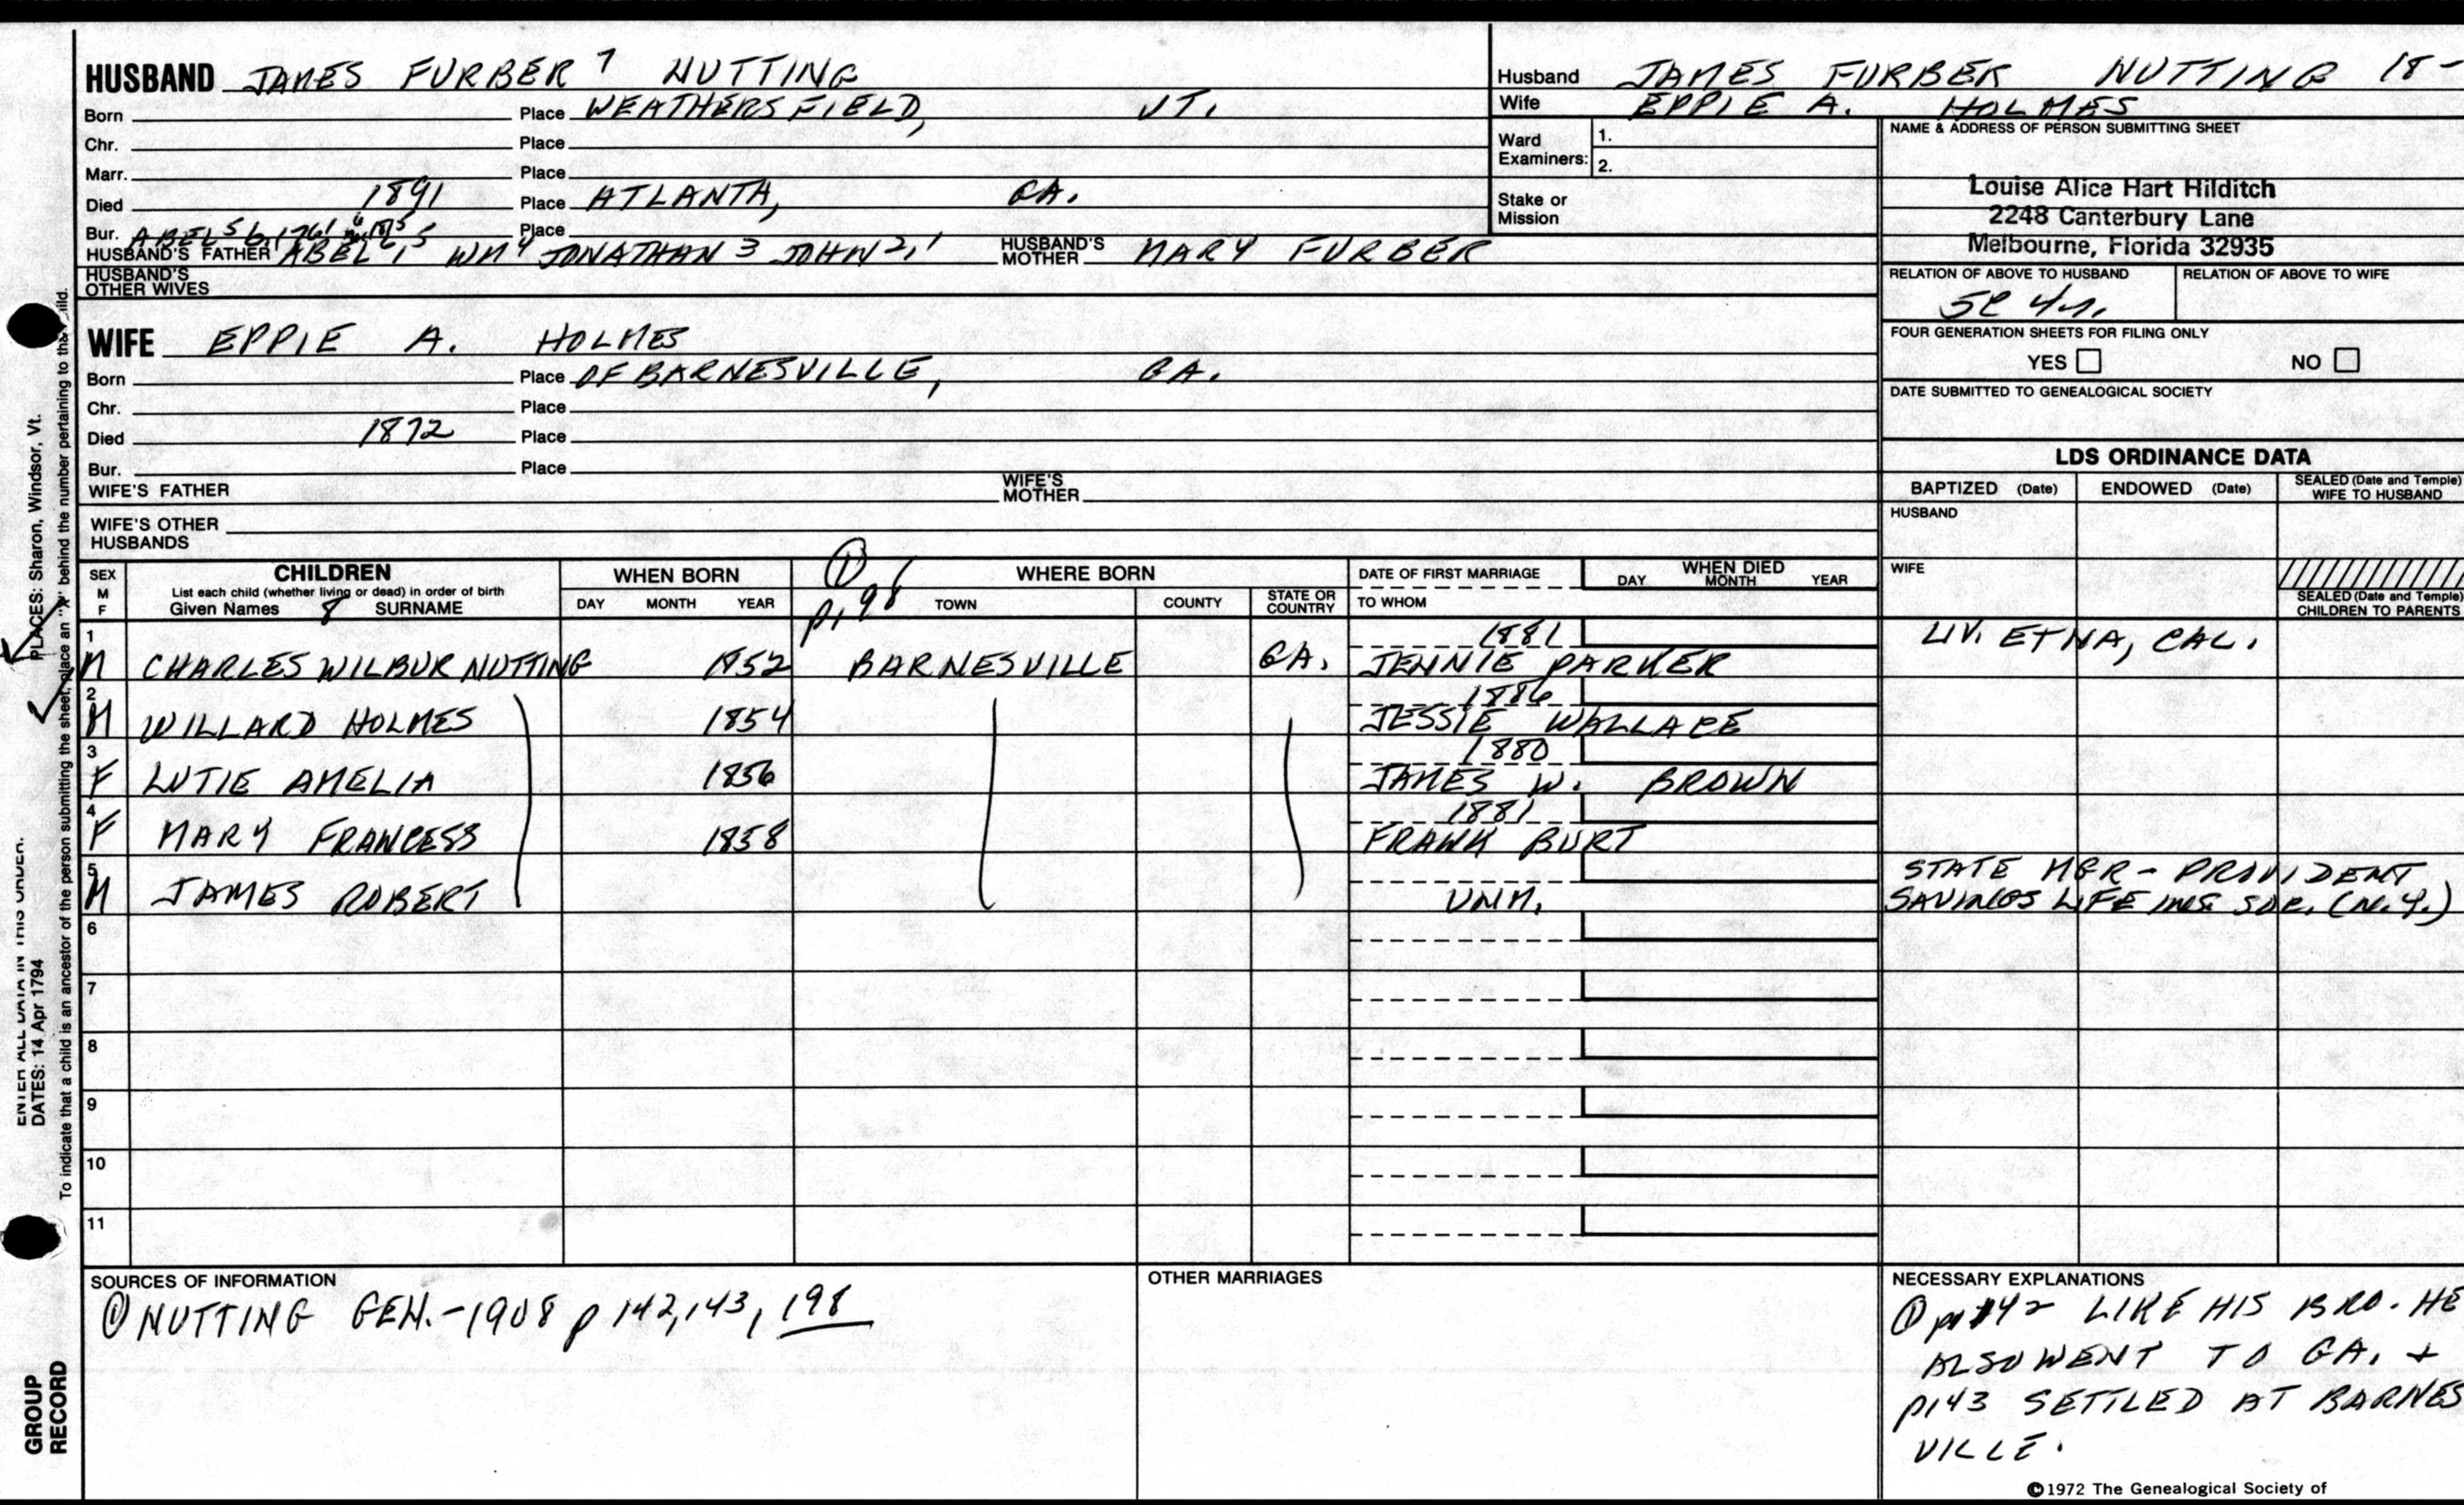 HUSBAND JAMES FURBER 7 NUTTING
Born Place WEATHERSFIELD, VT.
Chr. Place
Marr. Place
Died 1891 Place ATLANTA, GA.
Bur. ABEL Place
HUSBAND'S FATHER ABEL WM 4 JONATHAN 3 JOHN 2, 1 HUSBAND'S MOTHER MARY FURBER
HUSBAND'S OTHER WIVES
WIFE EPPIE A. HOLMES
Born Place OF BARNESVILLE, GA.
Chr. Place
Died 1872 Place
Bur. Place
WIFE'S FATHER WIFE'S MOTHER
WIFE'S OTHER HUSBANDS
Husband JAMES FURBER NUTTING 18-
Wife EPPIE A. HOLMES
Ward Examiners: 1.
2.
Stake or Mission
NAME & ADDRESS OF PERSON SUBMITTING SHEET
Louise Alice Hart Hilditch
2248 Canterbury Lane
Melbourne, Florida 32935
RELATION OF ABOVE TO HUSBAND RELATION OF ABOVE TO WIFE
FOUR GENERATION SHEETS FOR FILING ONLY
YES NO
DATE SUBMITTED TO GENEALOGICAL SOCIETY
LDS ORDINANCE DATA
BAPTIZED (Date) ENDOWED (Date) SEALED (Date and Temple) WIFE TO HUSBAND
HUSBAND
WIFE
SEALED (Date and Temple) CHILDREN TO PARENTS
SEX M F
CHILDREN
List each child (whether living or dead) in order of birth
Given Names 8 SURNAME
WHEN BORN
DAY MONTH YEAR
① p. 198
WHERE BORN
TOWN COUNTY STATE OR COUNTRY
DATE OF FIRST MARRIAGE
TO WHOM
WHEN DIED
DAY MONTH YEAR
1 1881 LIV. ETNA, CAL.
M CHARLES WILBUR NUTTING 1852 BARNESVILLE GA. JENNIE PARKER
2 1886
M WILLARD HOLMES 1854 JESSIE WALLACE
3 1880
F LUTIE AMELIA 1856 JAMES W. BROWN
4 1881
F MARY FRANCESS 1858 FRANK BURT
5 STATE MGR - PROVIDENT
M JAMES ROBERT UNM. SAVINGS LIFE INS. SOC. (N.Y.)
6
7
8
9
10
11
SOURCES OF INFORMATION
① NUTTING GEN. - 1908 p 142, 143, 198
OTHER MARRIAGES
NECESSARY EXPLANATIONS
① p 142 LIKE HIS BRO. HE
ALSO WENT TO GA. +
p143 SETTLED AT BARNES
VILLE.
©1972 The Genealogical Society of
ENTER ALL DATA IN THIS ORDER.
DATES: 14 Apr 1794 PLACES: Sharon, Windsor, Vt.
To indicate that a child is an ancestor of the person submitting the sheet, place an "X" behind the number pertaining to that child.
GROUP
RECORD